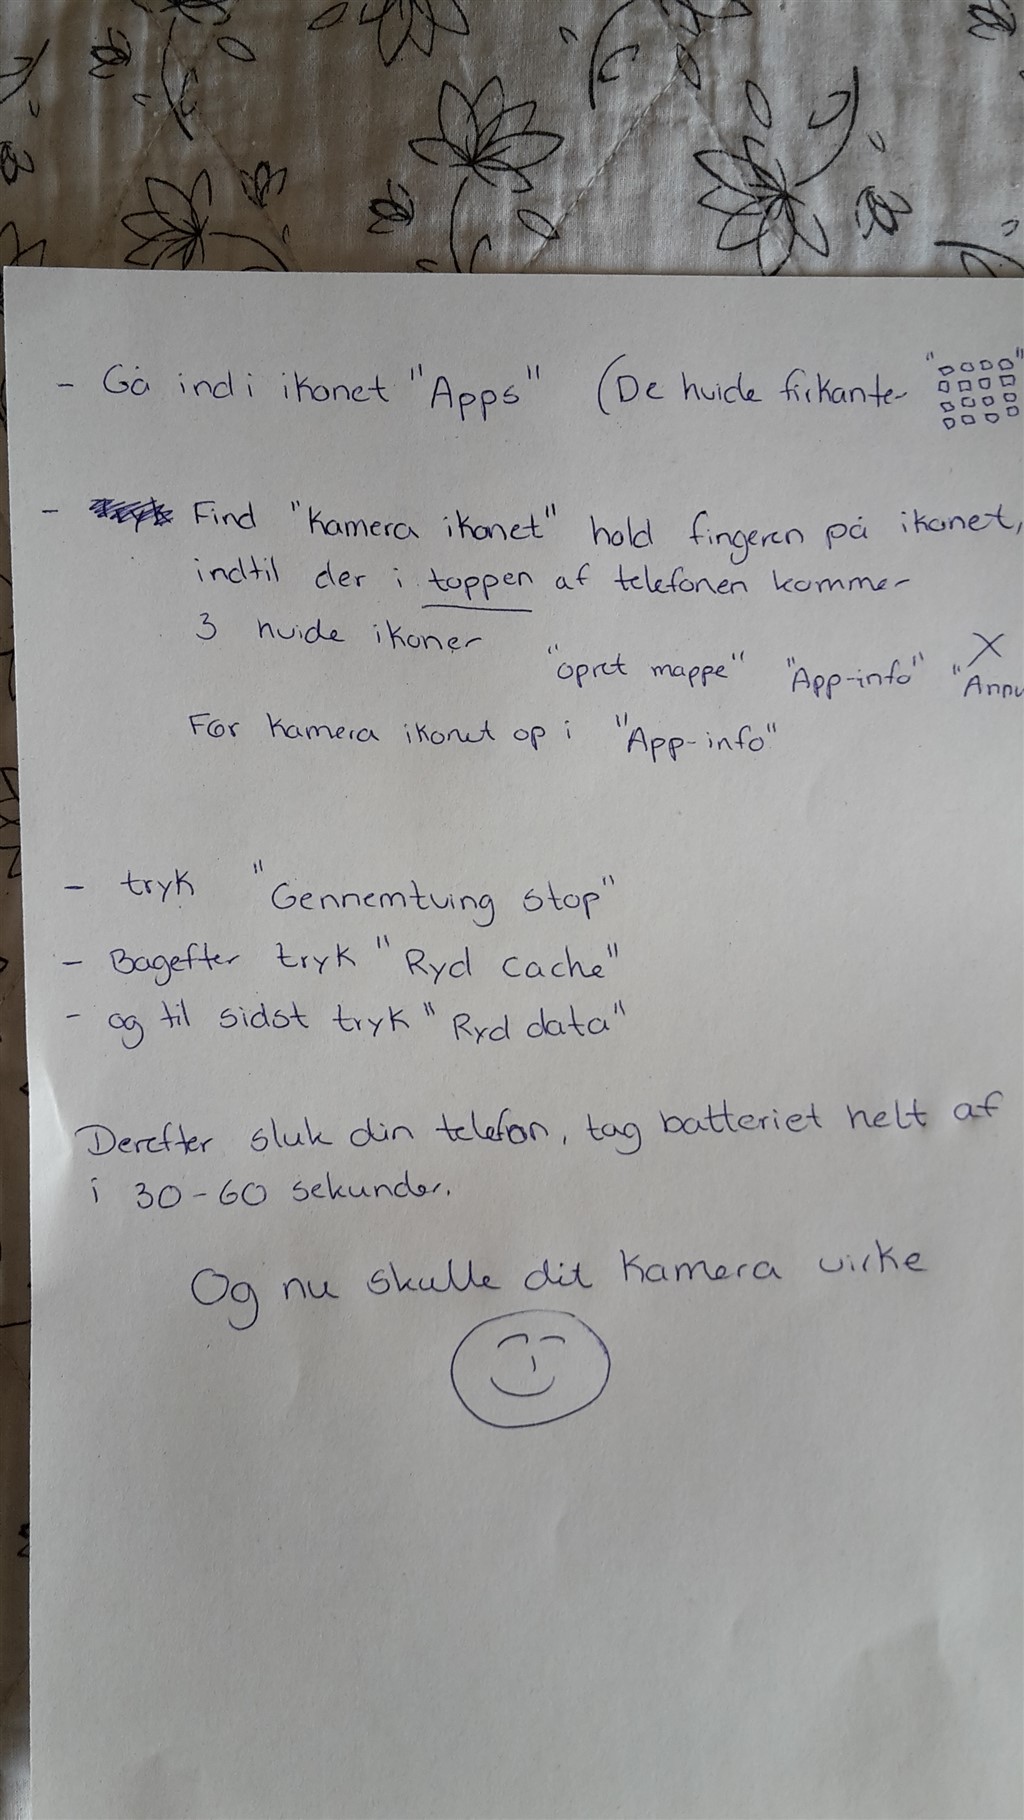 - Gå ind i ikonet "Apps" (De hvide firkanter
- Find "Kamera ikonet" hold fingeren på ikonet,
indtil der i toppen af telefonen kommer
3 hvide ikoner
"opret mappe" "App-info" X "Annu
Før Kamera ikonet op i "App-info"
- tryk "Gennemtving stop"
- Bagefter tryk "Ryd cache"
- og til sidst tryk "Ryd data"
Derefter sluk din telefon, tag batteriet helt af
i 30-60 sekunder.
Og nu skulle dit kamera virke